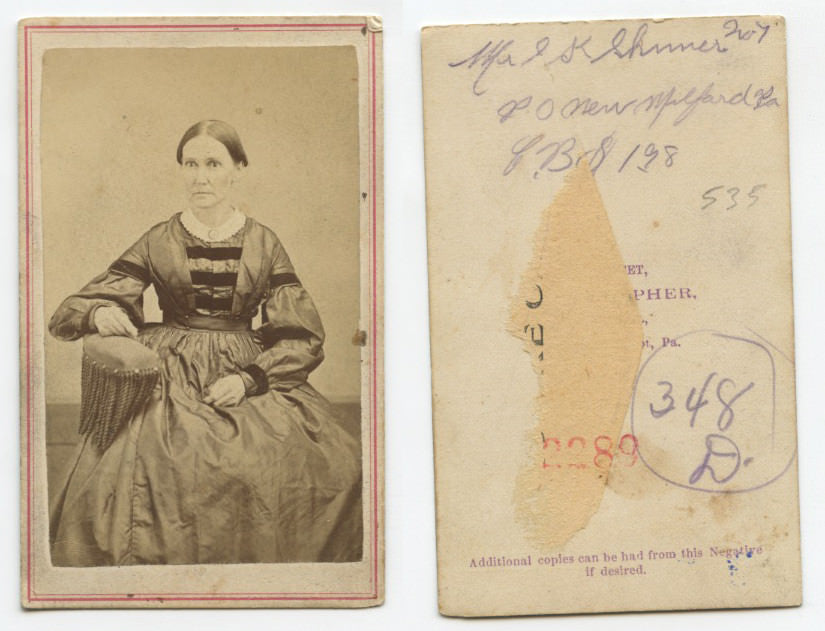 No 7
Mr I K Skinner
P.O New Milford Pa
C.B.S 198
535
ET,
PHER,
Pa.
348
D.
2289
Additional copies can be had from this Negative
if desired.